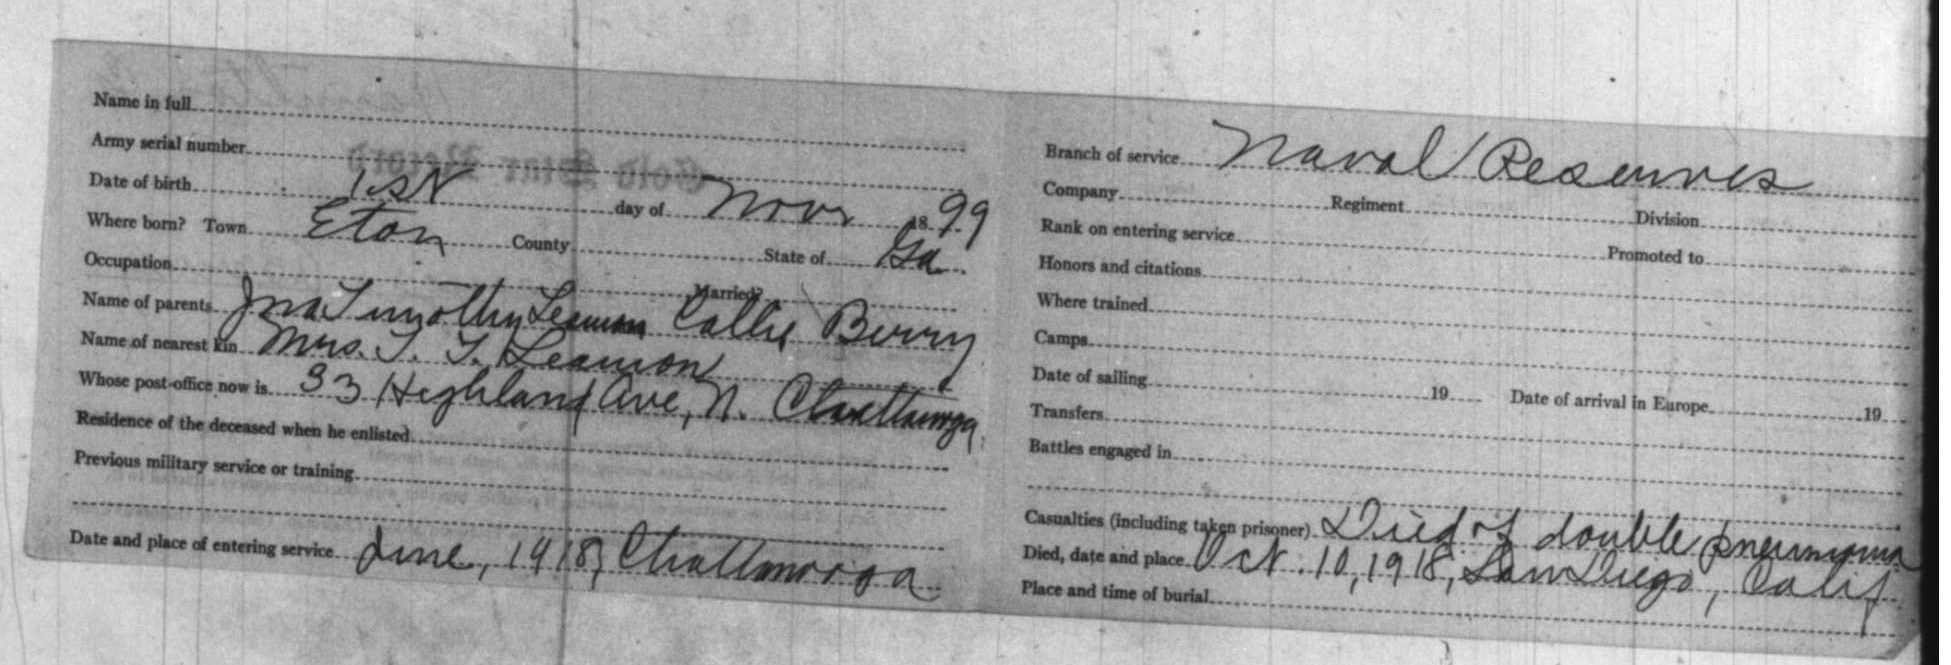 Name in full
Army serial number
Date of birth 1st day of Nov 1899
Where born? Town Eton County State of Ga.
Occupation Married?
Name of parents Jno Timothy Leamon Callie Berry
Name of nearest kin Mrs. J. T. Leamon
Whose post-office now is 33 Highland Ave, N. Chattanooga
Residence of the deceased when he enlisted
Previous military service or training
Date and place of entering service June, 1918, Chattanooga
Branch of service Naval Reserves
Company Regiment Division
Rank on entering service Promoted to
Honors and citations
Where trained
Camps
Date of sailing 19 Date of arrival in Europe 19
Transfers
Battles engaged in
Casualties (including taken prisoner) Died of double pneumonia
Died, date and place Oct. 10, 1918, San Diego, Calif
Place and time of burial